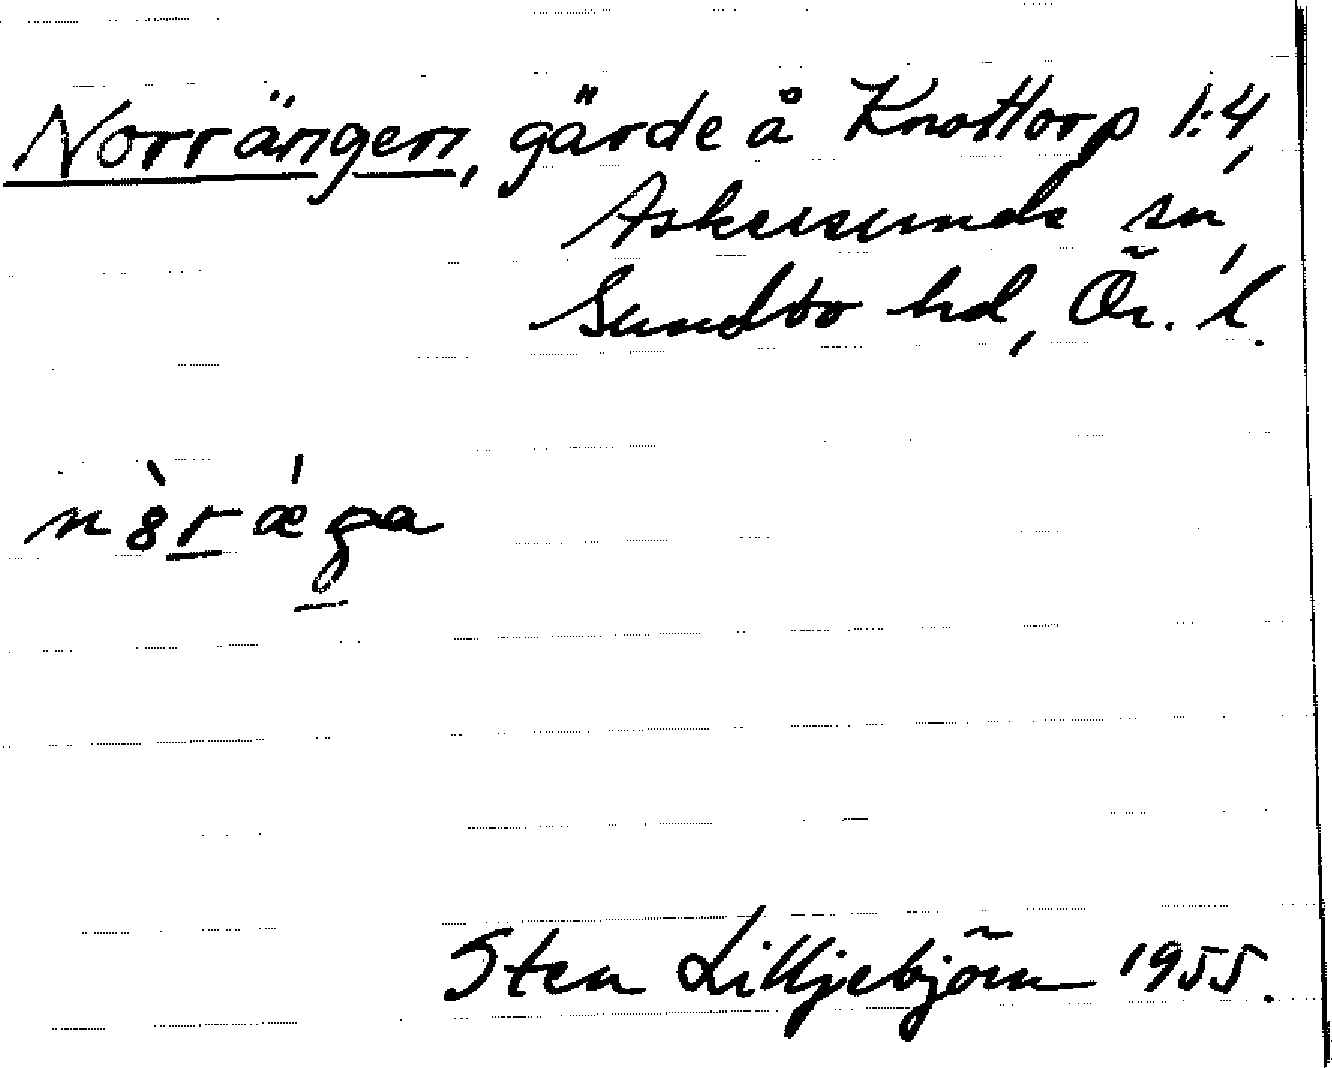 Norrängen, gärde å Knottorp 1:4,
Askersunds sn,
Sundbo hd, Ör. l.
n8̀rǽga
Sten Lilljebjörn 1955.